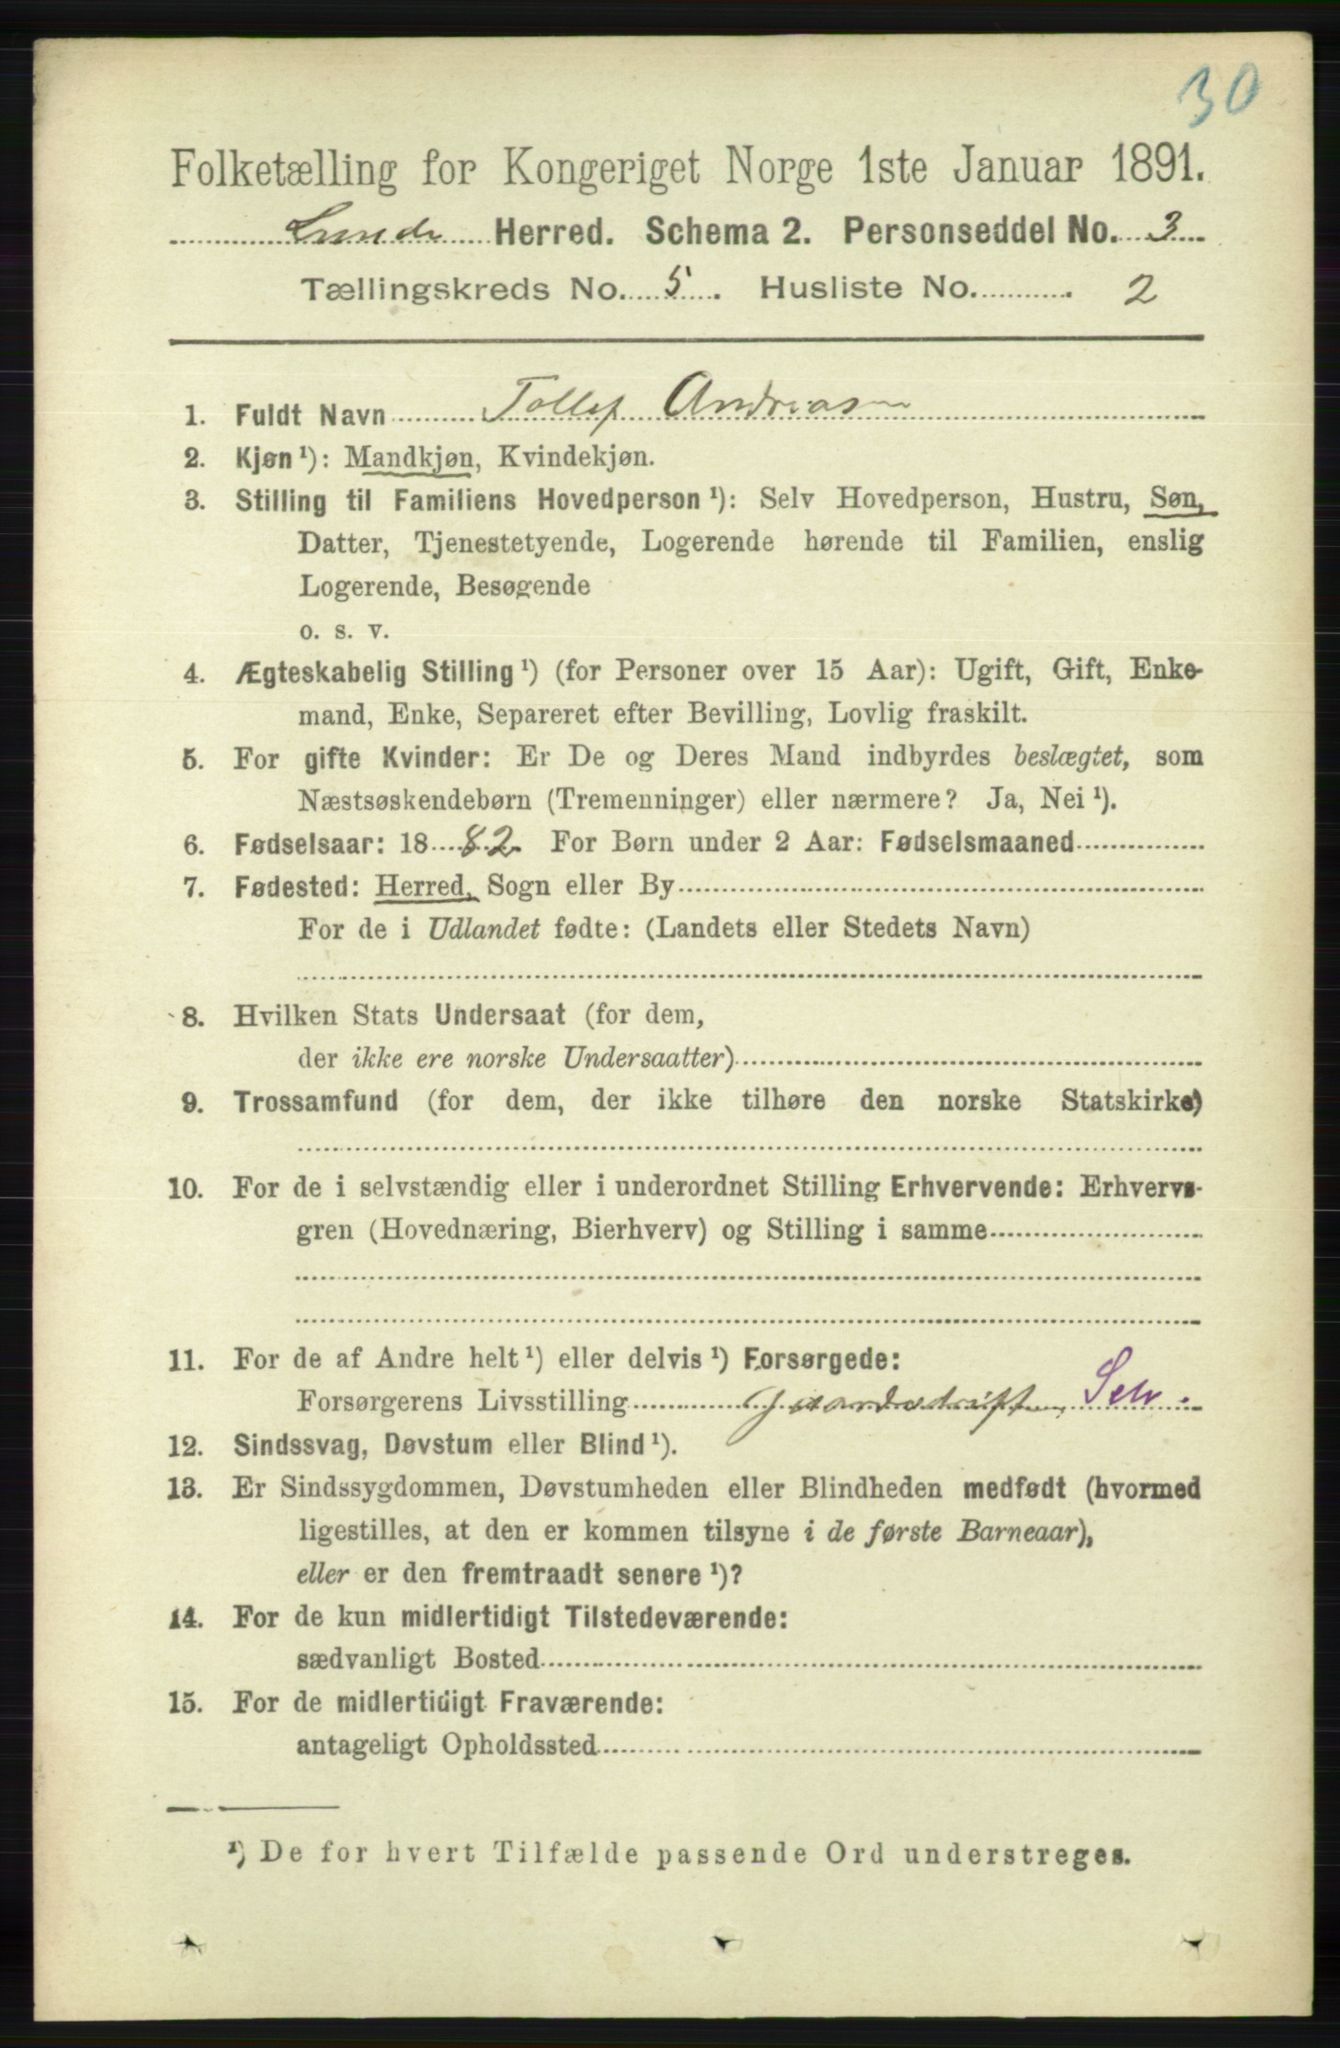 30
Folketælling for Kongeriget Norge 1ste Januar 1891.
Lunde Herred. Schema 2. Personseddel No. 3
Tællingskreds No. 5. Husliste No. 2
1. Fuldt Navn Tollef Andreas
2. Kjøn ¹): Mandkjøn, Kvindekjøn.
3. Stilling til Familiens Hovedperson ¹): Selv Hovedperson, Hustru, Søn,
Datter, Tjenestetyende, Logerende hørende til Familien, enslig
Logerende, Besøgende
o. s. v.
4. Ægteskabelig Stilling ¹) (for Personer over 15 Aar): Ugift, Gift, Enke-
mand, Enke, Separeret efter Bevilling, Lovlig fraskilt.
5. For gifte Kvinder: Er De og Deres Mand indbyrdes beslægtet, som
Næstsøskendebørn (Tremenninger) eller nærmere? Ja, Nei ¹).
6. Fødselsaar: 1882. For Børn under 2 Aar: Fødselsmaaned
7. Fødested: Herred, Sogn eller By
For de i Udlandet fødte: (Landets eller Stedets Navn)
8. Hvilken Stats Undersaat (for dem,
der ikke ere norske Undersaatter)
9. Trossamfund (for dem, der ikke tilhøre den norske Statskirke)
10. For de i selvstændig eller i underordnet Stilling Erhvervende: Erhvervs-
gren (Hovednæring, Bierhverv) og Stilling i samme
11. For de af Andre helt ¹) eller delvis ¹) Forsørgede:
Forsørgerens Livsstilling Gaardsdrift, Selv.
12. Sindssvag, Døvstum eller Blind ¹).
13. Er Sindssygdommen, Døvstumheden eller Blindheden medfødt (hvormed
ligestilles, at den er kommen tilsyne i de første Barneaar),
eller er den fremtraadt senere ¹)?
14. For de kun midlertidigt Tilstedeværende:
sædvanligt Bosted
15. For de midlertidigt Fraværende:
antageligt Opholdssted
¹) De for hvert Tilfælde passende Ord understreges.